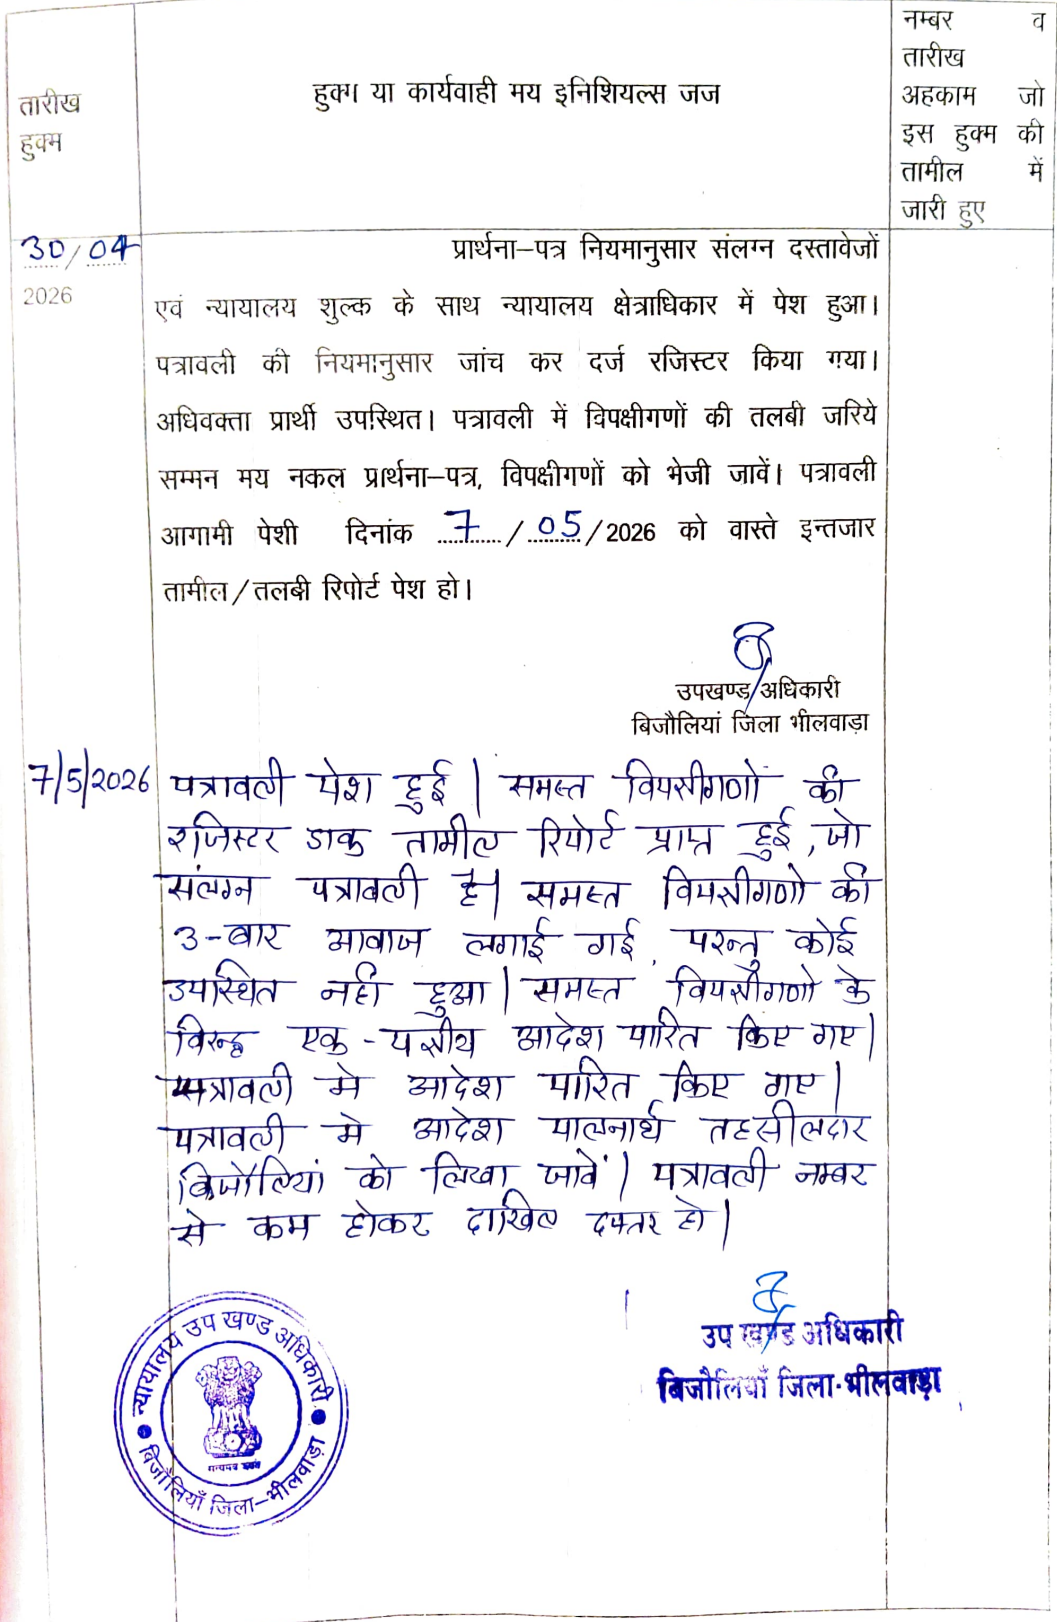 तारीख
हुक्म
हुक्म या कार्यवाही मय इनिशियल्स जज
नम्बर व
तारीख
अहकाम जो
इस हुक्म की
तामील में
जारी हुए
30/04
2026
प्रार्थना–पत्र नियमानुसार संलग्न दस्तावेजों
एवं न्यायालय शुल्क के साथ न्यायालय क्षेत्राधिकार में पेश हुआ।
पत्रावली की नियमानुसार जांच कर दर्ज रजिस्टर किया गया।
अधिवक्ता प्रार्थी उपस्थित। पत्रावली में विपक्षीगणों की तलबी जरिये
सम्मन मय नकल प्रार्थना–पत्र, विपक्षीगणों को भेजी जावें। पत्रावली
आगामी पेशी दिनांक 7/05/2026 को वास्ते इन्तजार
तामील/तलबी रिपोर्ट पेश हो।
उपखण्ड अधिकारी
बिजौलियां जिला भीलवाड़ा
7/5/2026 पत्रावली पेश हुई। समस्त विपक्षीगणों की
रजिस्टर डाक तामील रिपोर्ट प्राप्त हुई, जो
संलग्न पत्रावली है। समस्त विपक्षीगणो की
3-बार आवाज लगाई गई, परन्तु कोई
उपस्थित नही हुआ। समस्त विपक्षीगणो के
विरूद्ध एक-पक्षीय आदेश पारित किए गए।
पत्रावली मे आदेश पारित किए गए।
पत्रावली मे आदेश पालनार्थ तहसीलदार
बिजौलियां को लिखा जावें। पत्रावली नम्बर
से कम होकर दाखिल दफ्तर हो।
उप खण्ड अधिकारी
बिजौलियाँ जिला-भीलवाड़ा
न्यायालय उप खण्ड अधिकारी
बिजौलियाँ जिला–भीलवाड़ा